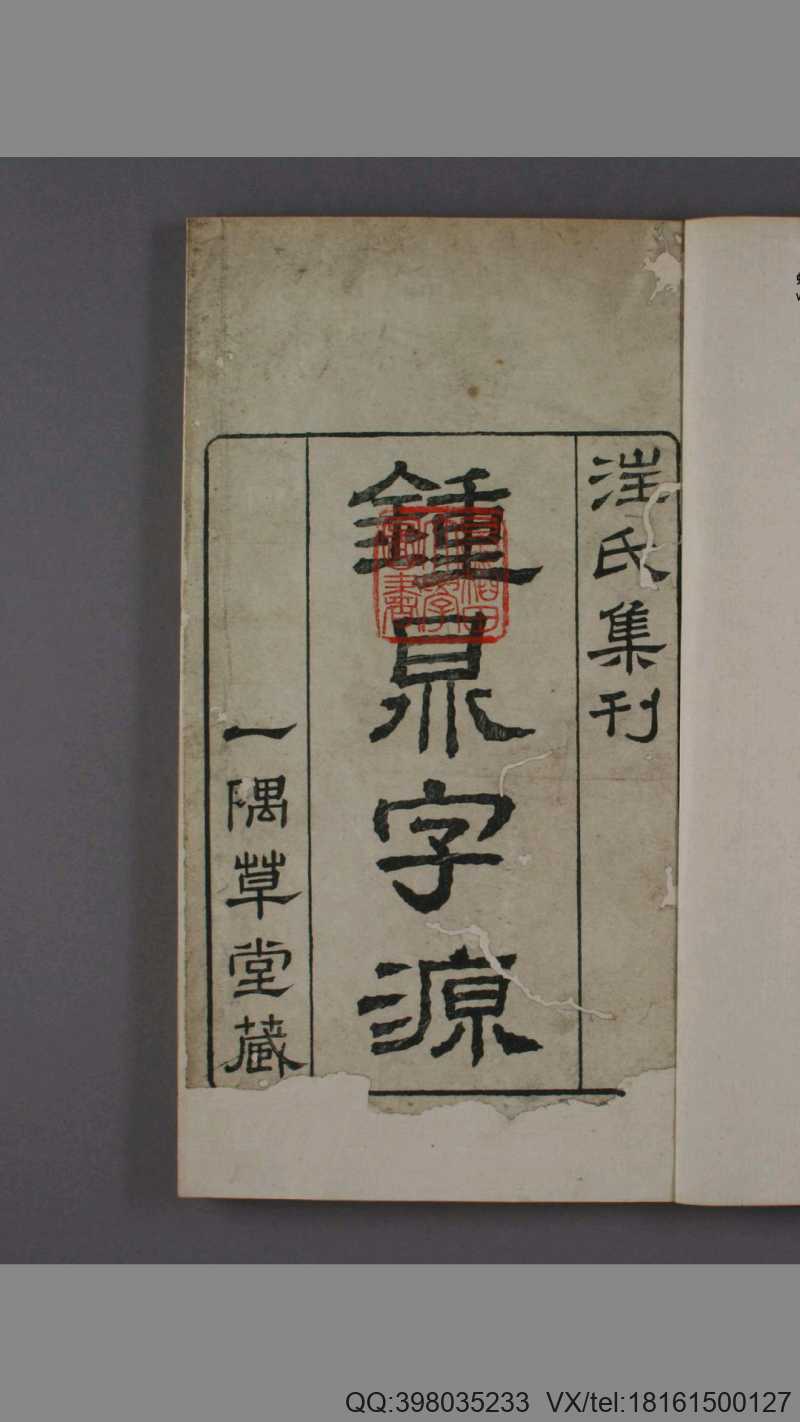 汪氏集刊
鍾鼎字源
一隅草堂藏
QQ:398035233 VX/tel:18161500127